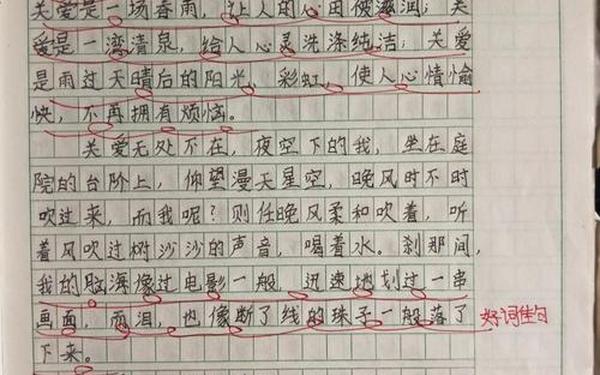 关爱是一场春雨，让人的心田被滋润；关
爱是一湾清泉，给人心灵洗涤纯洁；关爱
是雨过天晴后的阳光，彩虹，使人心情愉
快，不再拥有烦恼。
关爱无处不在，夜空下的我，坐在庭
院的台阶上，仰望漫天星空，晚风时不时
吹过来，而我呢？则任晚风柔和吹着，听
着风吹过树沙沙的声音，喝着水。刹那间，
我的脑海像过电影一般，迅速地划过一串
画面，而泪，也像断了线的珠子一般落了
下来。
好词佳句